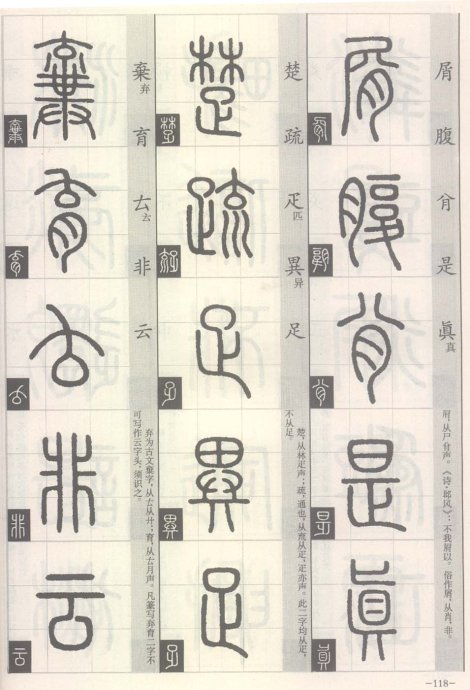 屑 腹 是 眞真
屑,从尸声。《诗·邶风》:不我屑以。俗作屑,从肖,非。
楚 疏 疋匹 異异 足
楚,从林疋声;疏,通也,从㐬从疋,疋亦声。此二字均从疋,
不从足。
棄弃 育 𠫓 非 云
弃为古文棄字,从𠫓从廾;育,从𠫓月声。凡篆写弃育二字不
可写作云字头,须识之。
屑
腹
是
眞
楚
疏
疋
異
足
棄
育
𠫓
非
云
-118-